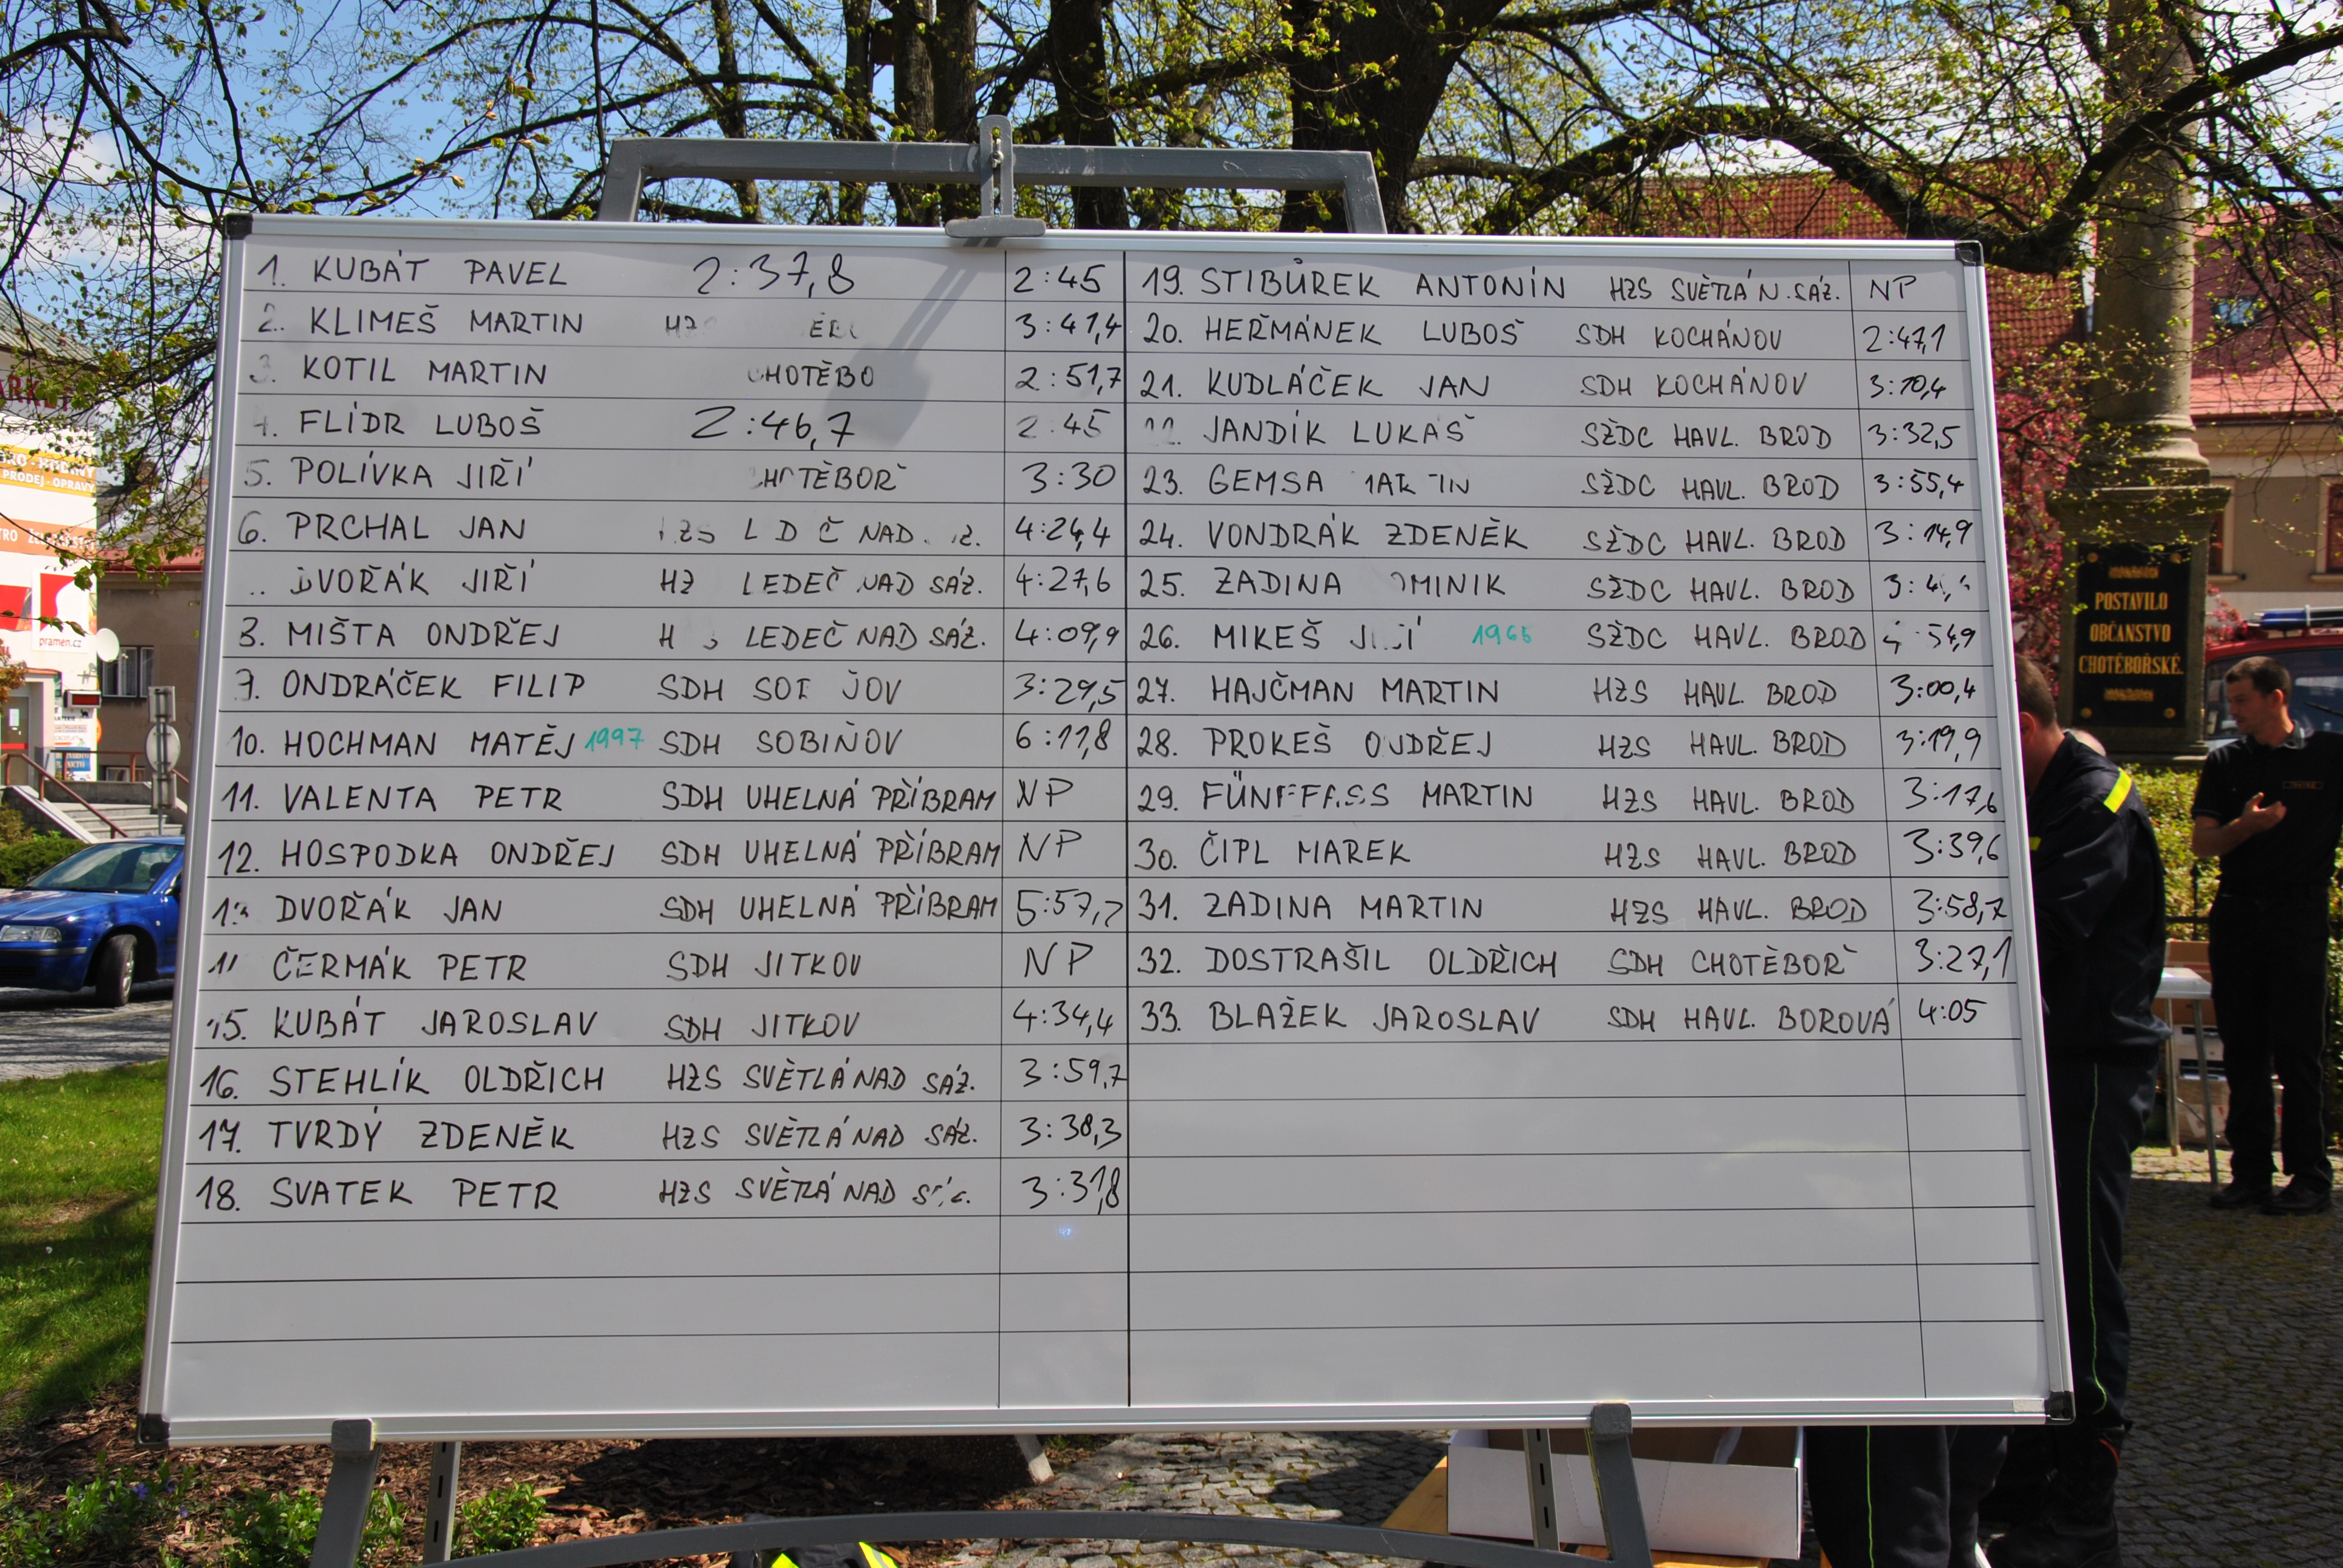 1. KUBÁT PAVEL 2:37,8 2:45
2. KLIMEŠ MARTIN 3:41,4
3. KOTIL MARTIN CHOTĚBO 2:51,7
4. FLÍDR LUBOŠ 2:46,7 2:45
5. POLÍVKA JIŘÍ 3:30
6. PRCHAL JAN NAD 4:24,4
DVOŘÁK JIŘÍ HZ LEDEČ NAD SÁZ. 4:27,6
MIŠTA ONDŘEJ LEDEČ NAD SÁZ. 4:09,9
ONDRÁČEK FILIP SDH 3:29,5
10. HOCHMAN MATĚJ 1997 SDH SOBIŇOV 6:11,8
11. VALENTA PETR SDH UHELNÁ PŘÍBRAM NP
12. HOSPODKA ONDŘEJ SDH UHELNÁ PŘÍBRAM NP
DVOŘÁK JAN SDH UHELNÁ PŘÍBRAM 5:57,7
ČERMÁK PETR SDH JITKOV NP
15. KUBÁT JAROSLAV SDH JITKOV 4:34,4
16. STEHLÍK OLDŘICH HZS SVĚTLÁ NAD SÁZ. 3:59,7
17. TVRDÝ ZDENĚK HZS SVĚTLÁ NAD SÁZ. 3:38,3
18. SVATEK PETR HZS SVĚTLÁ NAD 3:31,8
19. STIBŮREK ANTONÍN HZS SVĚTLÁ N. SÁZ. NP
20. HEŘMÁNEK LUBOŠ SDH KOCHÁNOV 2:47,1
21. KUDLÁČEK JAN SDH KOCHÁNOV 3:10,4
JANDÍK LUKÁŠ SŽDC HAVL. BROD 3:32,5
23. GEMSA SŽDC HAVL. BROD 3:55,4
24. VONDRÁK ZDENĚK SŽDC HAVL. BROD 3:14,9
25. ZADINA SŽDC HAVL. BROD
26. MIKEŠ SŽDC HAVL. BROD
27. HAJČMAN MARTIN HZS HAVL. BROD 3:00,4
28. PROKEŠ ONDŘEJ HZS HAVL. BROD 3:19,9
29. MARTIN HZS HAVL. BROD 3:17,6
30. ČIPL MAREK HZS HAVL. BROD 3:39,6
31. ZADINA MARTIN HZS HAVL. BROD 3:58,7
32. DOSTRAŠIL OLDŘICH SDH CHOTĚBOŘ 3:27,1
33. BLAŽEK JAROSLAV SDH HAVL. BOROVÁ 4:05
POSTAVILO
OBČANSTVO
CHOTĚBOŘSKÉ.
PRODEJ - OPRAVY
pramen.cz